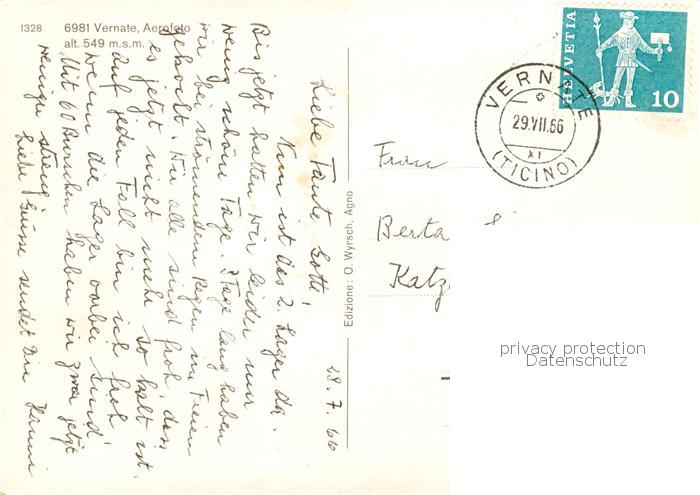 1328
6981 Vernate, Aerofoto
alt. 549 m.s.m.
28.7.66
Liebe Tante Gotte!
Nun ist das 2. Lager da.
Bis jetzt hatten wir leider nur
wenig schöne Tage. 3 Tage lang haben
wir bei strömendem Regen im Freien
gekocht. Wir alle sind froh, dass
es jetzt nicht mehr so kalt ist.
Auf jeden Fall bin ich froh
wenn die Lager vorbei sind!
Mit 60 Buruschen haben wir zwar jetzt
weniger streng.
Liebe Grüsse sendet Dir Hanni
Edizione: O. Wyrsch, Agno
HELVETIA
10
VERNATE
29.VII.66
XI
(TICINO)
Frau
Berta
Katz
privacy protection
Datenschutz